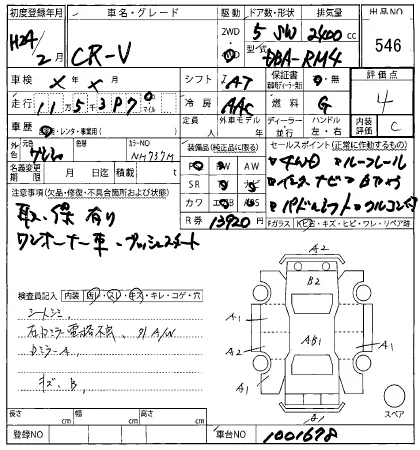 初度登録年月 車名・グレード 駆動 ドア数・形状 排気量 出品NO
H24/2月 CR-V 2WD 5 SW 2400cc 546
型式 DBA-RM4
車検 × 年 × 月 シフト IAT 保証書 有・無 評価点
走行 11万5397 マイル 冷房 AAC 燃料 G 4
車歴 自・レンタ・事業用( ) 定員 人 外車モデル年 年 ディーラー 並行 ハンドル 左・右 内装 C
外色 元色 色替 カラーNO NH737M 装備品(純正品に限る) セールスポイント(正常に作動するもの)
名義変更期限 月 日 日迄 積載 t PS PW AW 4WD ルーフレール
注意事項(欠品・修復・不具合箇所および状態) SR ナビ インターナビ Bカメラ
取・保 有り カワ ABS パドルシフト フルコンプ
ワンオーナー車・プッシュスタート R券 13920 Fガラス キズ・ヒビ・ワレ・リペア跡
検査員記入 内装 コゲ・穴
シートシミ
右ミラー電格不良 外A/W
Dミラー A
キズ、B
A2
B2
A1
A2
AB1
A1
A1
B1
スペア
長さ cm 幅 cm 高さ cm
登録NO 車台NO 1001678